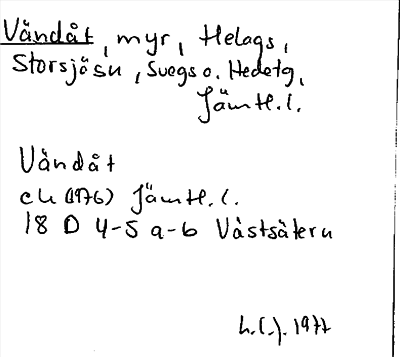 Vändåt, myr, Helags,
Storsjösn, Svegs o. Hedetg,
Jämtl.l.
Vändåt
ek (1976) Jämtl.l.
18 D 4-5 a-b Västsätern
1977